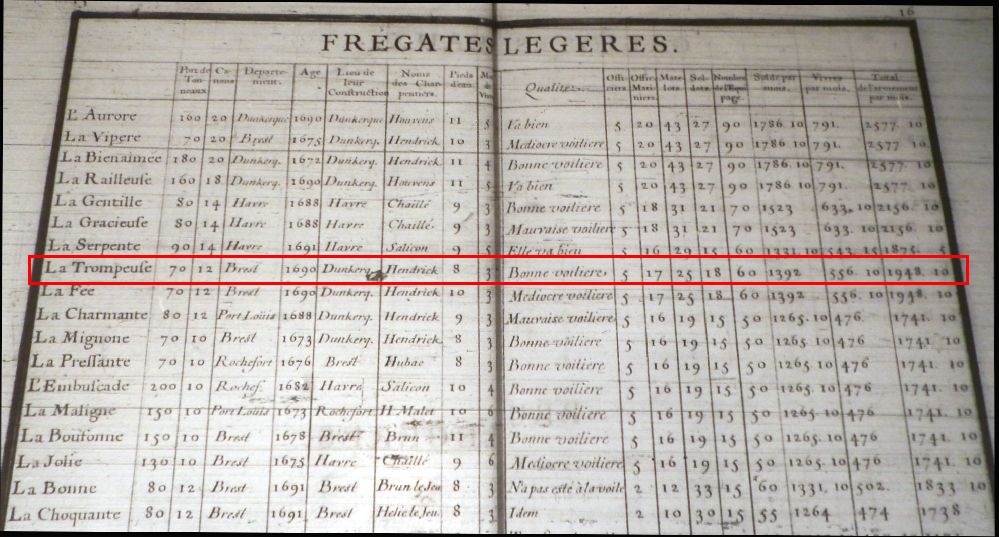 16
FREGATES LEGERES.
Port de Tonneaux Canons Departement. Age Lieu de leur Construction Noms des Charpentiers. Pieds d'eau Qualitez. Officiers Offic. Mariniers Matelots. Soldats. Nombre de l'Equipage. Solde par mois. Vivres par mois. Total de l'armement par mois.
L'Aurore 160 20 Dunkerque 1690 Dunkerque Houvens 11 5 Va bien 5 20 43 27 90 1786. 10 791. 2577. 10
La Vipere 70 20 Brest 1675 Dunkerq. Hendrick 10 3 Mediocre voiliere 5 20 43 27 90 1786 10 791. 2577 10
La Bienaimée 180 20 Dunkerq. 1672 Dunkerq. Hendrick 11 4 Bonne voiliere 5 20 43 27 90 1786. 10 791. 2577. 10
La Railleuse 160 18 Dunkerq. 1690 Dunkerq. Houvens 11 5 Va bien 5 20 43 27 90 1786. 10 791. 2577. 10
La Gentille 80 14 Havre 1688 Havre Chaillé 9 3 Bonne voiliere 5 18 31 21 70 1523 633. 10 2156. 10
La Gracieuse 80 14 Havre 1688 Havre Chaillé 9 3 Mauvaise voiliere 5 18 31 21 70 1523 633. 10 2156. 10
La Serpente 90 14 Havre 1691 Havre Salicon 9 5 Elle va bien 5 16 29 15 60 1331. 10 543. 15 1875. 5
La Trompeuse 70 12 Brest 1690 Dunkerq. Hendrick 8 3 Bonne voiliere, 5 17 25 18 60 1392 556. 10 1948. 10
La Fée 70 12 Brest 1690 Dunkerq. Hendrick 10 3 Mediocre voiliere 5 17 25 18 60 1392 556. 10 1948. 10
La Charmante 80 12 Port Loüis 1688 Dunkerq. Hendrick 9 3 Mauvaise voiliere 5 16 19 15 50 1265. 10 476. 1741. 10
La Mignone 70 10 Brest 1673 Dunkerq. Hendrick 8 3 Bonne voiliere 5 16 19 15 50 1265. 10 476 1741. 10
La Pressante 70 10 Rochefort 1676 Brest Hubac 8 3 Bonne voiliere 5 16 19 15 50 1265. 10 476 1741. 10
L'Embuscade 200 10 Rochef. 1682 Havre Salicon 10 4 Bonne voiliere 5 16 19 15 50 1265. 10 476 1741. 10
La Maligne 150 10 Port Louis 1673 Rochefort. H. Malet 10 6 Bonne voiliere 5 16 19 15 50 1265. 10 476 1741. 10
La Boufonne 150 10 Brest 1678 Brest Brun 11 4 Bonne voiliere 5 16 19 15 50 1265. 10 476 1741. 10
La Jolie 130 10 Brest 1675 Havre Chaillé 9 6 Mediocre voiliere 5 16 19 15 50 1265. 10 476 1741. 10
La Bonne 80 12 Brest 1691 Brest Brun le Jeu 8 3 N'a pas esté à la voile 2 12 33 15 60 1331. 10 502. 1833 10
La Choquante 80 12 Brest 1691 Brest Helie le Jeu 8 3 Idem 2 10 30 15 55 1264 474 1738